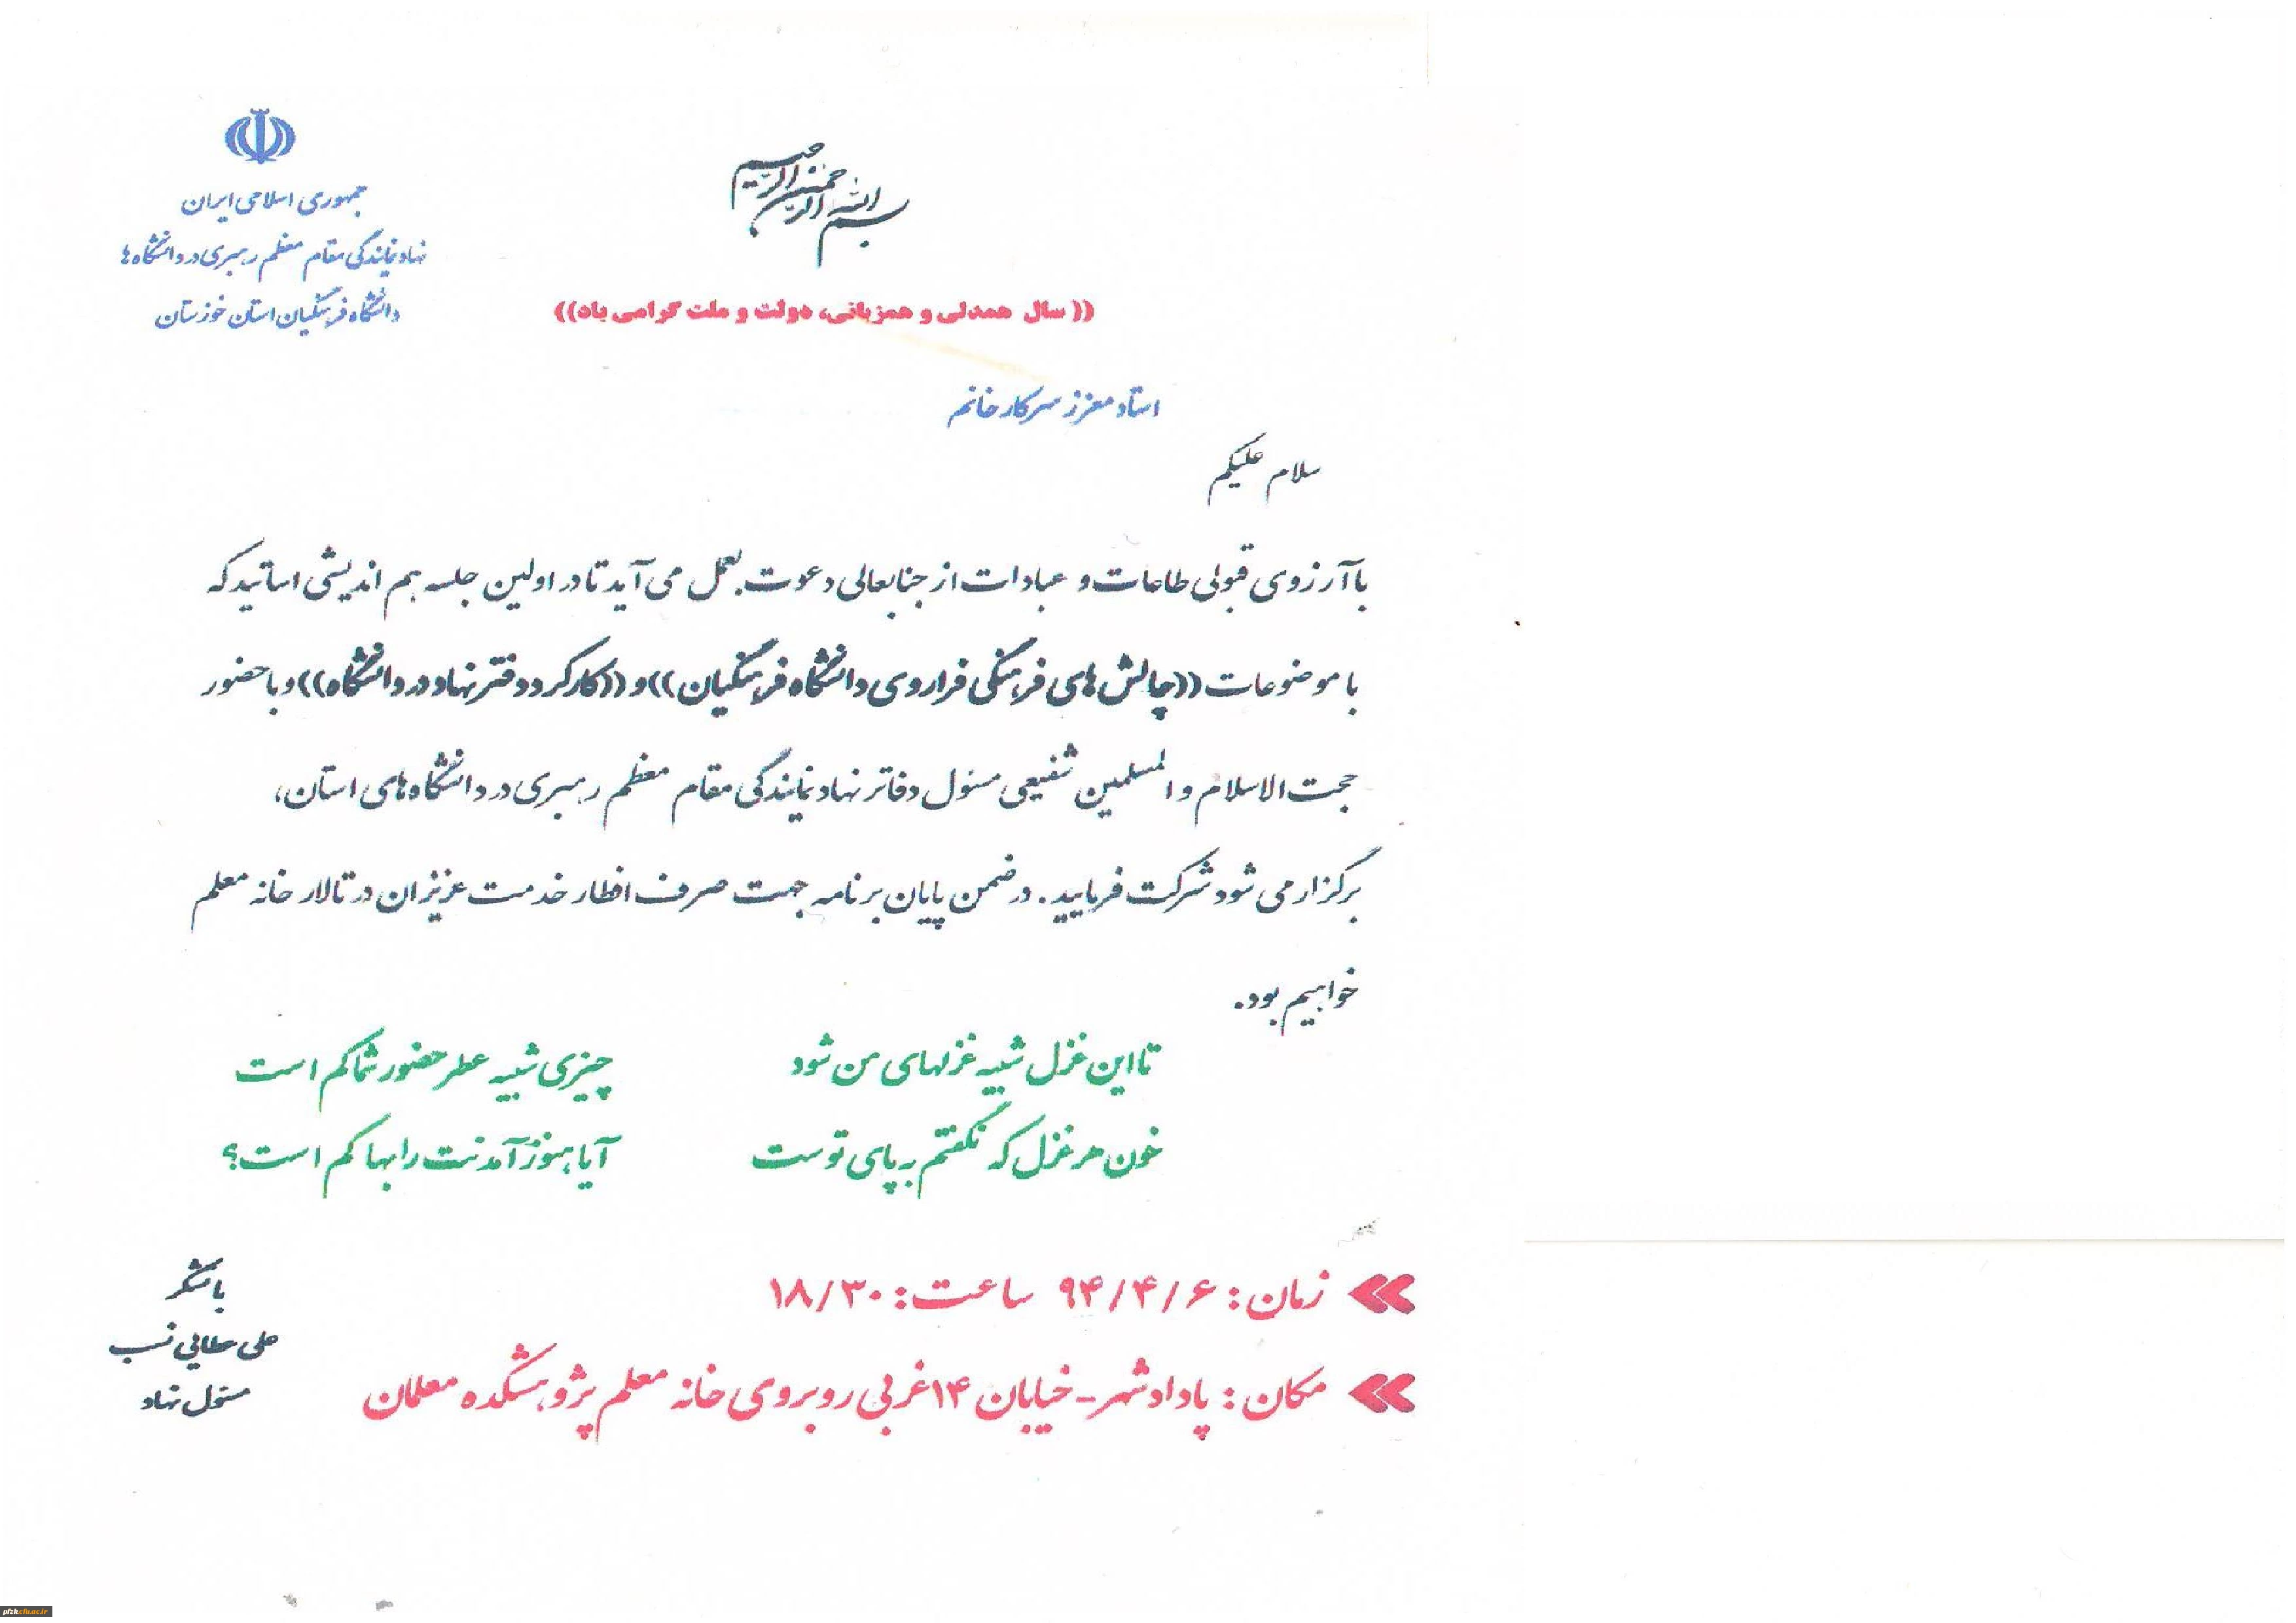 بسم الله الرحمن الرحیم
جمهوری اسلامی ایران
نهاد نمایندگی مقام معظم رهبری در دانشگاه ها
دانشگاه فرهنگیان استان خوزستان
((سال همدلی و همزبانی، دولت و ملت گرامی باد))
استاد معزز سرکار خانم
سلام علیکم
با آرزوی قبولی طاعات و عبادات از جنابعالی دعوت بعمل می آید تا در اولین جلسه هم اندیشی اساتید که
با موضوعات ((چالش های فرهنگی فراروی دانشگاه فرهنگیان)) و ((کارکرد دفتر نهاد در دانشگاه)) و با حضور
حجت الاسلام و المسلمین شفیعی مسئول دفاتر نهاد نمایندگی مقام معظم رهبری در دانشگاه های استان،
برگزار می شود شرکت فرمایید. در ضمن پایان برنامه جهت صرف افطار خدمت عزیزان در تالار خانه معلم
خواهیم بود.
تا این غزل شبیه غزلهای من شود چیزی شبیه عطر حضور شما کم است
خون هر غزل که نگفتم به پای توست آیا هنوز آمدنت را بها کم است؟
زمان: ۹۴/۴/۶ ساعت: ۱۸/۳۰
مکان: پادادشهر- خیابان ۱۴غربی روبروی خانه معلم پژوهشکده معلمان
با تشکر
علی عطایی نسب
مسئول نهاد